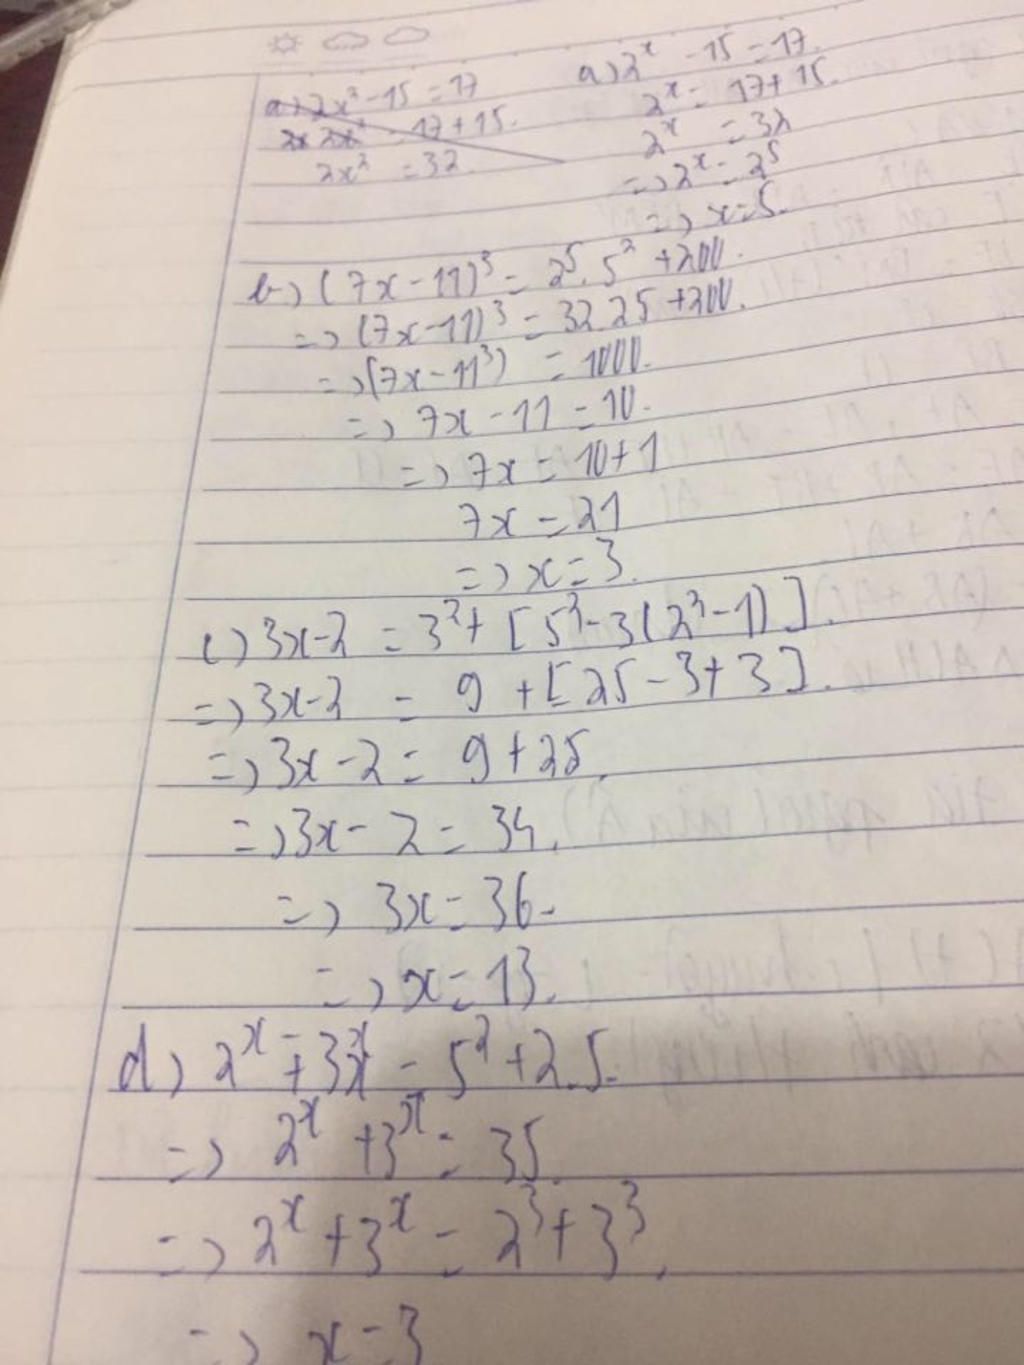 a) 2x² - 15 = 17
2x² = 17 + 15.
2x² = 32
a) 2ˣ - 15 = 17.
2ˣ = 17 + 15.
2ˣ = 32
=> 2ˣ = 2⁵
=> x = 5.
b) (7x - 11)³ = 2⁵. 5² + 200.
=> (7x - 11)³ = 32.25 + 200.
=> (7x - 11³) = 1000.
=> 7x - 11 = 10.
=> 7x = 10 + 1
7x = 21
=> x = 3.
c) 3x - 2 = 3² + [5² - 3(2³ - 1)].
=> 3x - 2 = 9 + [25 - 3 + 3].
=> 3x - 2 = 9 + 25.
=> 3x - 2 = 34.
=> 3x = 36.
=> x = 13.
d) 2ˣ + 3ˣ = 5² + 2.5.
=> 2ˣ + 3ˣ = 35.
=> 2ˣ + 3ˣ = 2³ + 3³.
=> x = 3